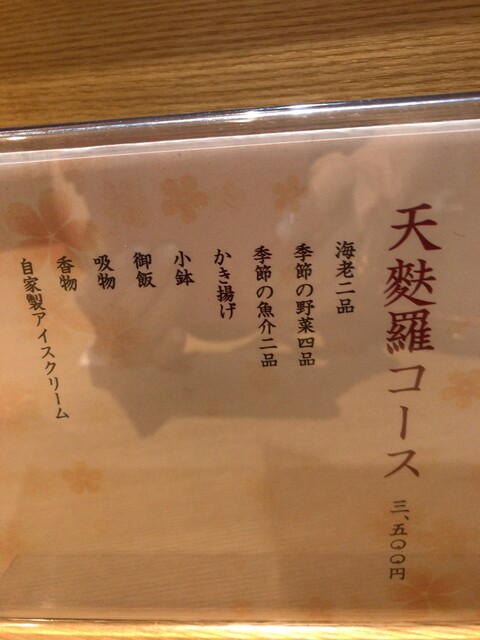 天麩羅コース 三、五〇〇円
海老二品
季節の野菜四品
季節の魚介二品
かき揚げ
小鉢
御飯
吸物
香物
自家製アイスクリーム